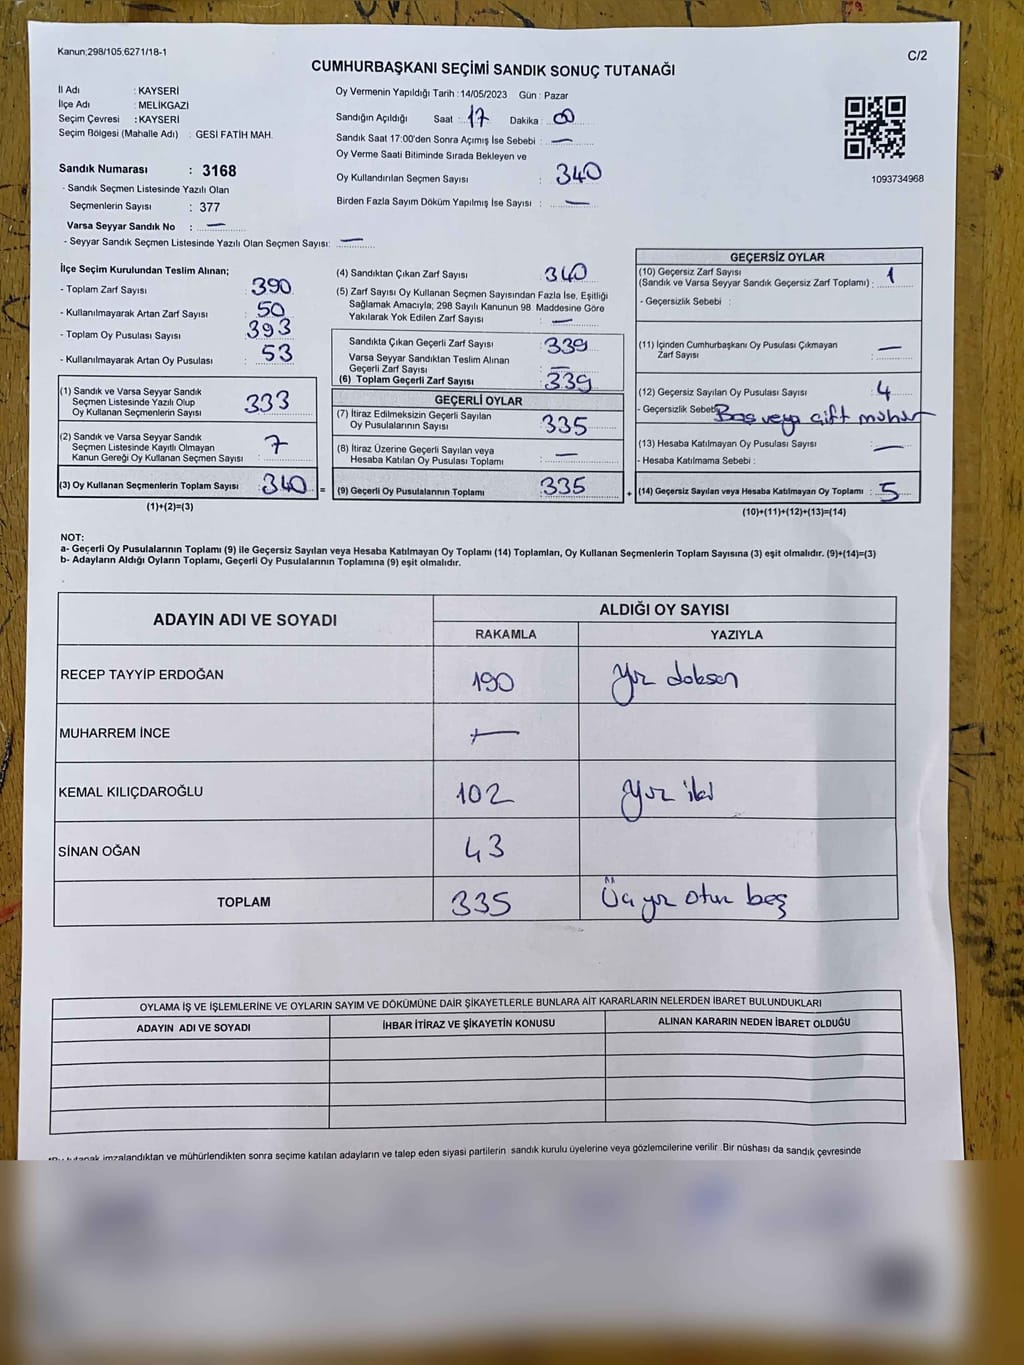 Kanun;298/105;6271/18-1
C/2
CUMHURBAŞKANI SEÇİMİ SANDIK SONUÇ TUTANAĞI
İl Adı : KAYSERİ
İlçe Adı : MELİKGAZİ
Seçim Çevresi : KAYSERİ
Seçim Bölgesi (Mahalle Adı) : GESI FATİH MAH.
Sandık Numarası : 3168
- Sandık Seçmen Listesinde Yazılı Olan
Seçmenlerin Sayısı : 377
Varsa Seyyar Sandık No : —
- Seyyar Sandık Seçmen Listesinde Yazılı Olan Seçmen Sayısı: —
Oy Vermenin Yapıldığı Tarih : 14/05/2023 Gün : Pazar
Sandığın Açıldığı Saat : 17 Dakika : 00
Sandık Saat 17:00'den Sonra Açımış İse Sebebi : —
Oy Verme Saati Bitiminde Sırada Bekleyen ve
Oy Kullandırılan Seçmen Sayısı : 340
Birden Fazla Sayım Döküm Yapılmış İse Sayısı : —
1093734968
İlçe Seçim Kurulundan Teslim Alınan;
- Toplam Zarf Sayısı : 390
- Kullanılmayarak Artan Zarf Sayısı : 50
- Toplam Oy Pusulası Sayısı : 393
- Kullanılmayarak Artan Oy Pusulası : 53
(1) Sandık ve Varsa Seyyar Sandık
Seçmen Listesinde Yazılı Olup
Oy Kullanan Seçmenlerin Sayısı : 333
(2) Sandık ve Varsa Seyyar Sandık
Seçmen Listesinde Kayıtlı Olmayan
Kanun Gereği Oy Kullanan Seçmen Sayısı : 7
(3) Oy Kullanan Seçmenlerin Toplam Sayısı : 340 =
(1)+(2)=(3)
(4) Sandıktan Çıkan Zarf Sayısı : 340
(5) Zarf Sayısı Oy Kullanan Seçmen Sayısından Fazla İse, Eşitliği
Sağlamak Amacıyla; 298 Sayılı Kanunun 98. Maddesine Göre
Yakılarak Yok Edilen Zarf Sayısı : —
Sandıkta Çıkan Geçerli Zarf Sayısı : 339
Varsa Seyyar Sandıktan Teslim Alınan
Geçerli Zarf Sayısı : —
(6) Toplam Geçerli Zarf Sayısı : 339
GEÇERLİ OYLAR
(7) İtiraz Edilmeksizin Geçerli Sayılan
Oy Pusulalarının Sayısı : 335
(8) İtiraz Üzerine Geçerli Sayılan veya
Hesaba Katılan Oy Pusulası Toplamı : —
(9) Geçerli Oy Pusulalarının Toplamı : 335 +
GEÇERSİZ OYLAR
(10) Geçersiz Zarf Sayısı
(Sandık ve Varsa Seyyar Sandık Geçersiz Zarf Toplamı) : 1
- Geçersizlik Sebebi :
(11) İçinden Cumhurbaşkanı Oy Pusulası Çıkmayan
Zarf Sayısı : —
(12) Geçersiz Sayılan Oy Pusulası Sayısı : 4
- Geçersizlik Sebebi Boş veya çift mühür
(13) Hesaba Katılmayan Oy Pusulası Sayısı : —
- Hesaba Katılmama Sebebi :
(14) Geçersiz Sayılan veya Hesaba Katılmayan Oy Toplamı : 5
(10)+(11)+(12)+(13)=(14)
NOT:
a- Geçerli Oy Pusulalarının Toplamı (9) ile Geçersiz Sayılan veya Hesaba Katılmayan Oy Toplamı (14) Toplamları, Oy Kullanan Seçmenlerin Toplam Sayısına (3) eşit olmalıdır. (9)+(14)=(3)
b- Adayların Aldığı Oyların Toplamı, Geçerli Oy Pusulalarının Toplamına (9) eşit olmalıdır.
ADAYIN ADI VE SOYADI
ALDIĞI OY SAYISI
RAKAMLA YAZIYLA
RECEP TAYYİP ERDOĞAN 190 Yüz doksan
MUHARREM İNCE —
KEMAL KILIÇDAROĞLU 102 Yüz iki
SİNAN OĞAN 43
TOPLAM 335 Üç yüz otuz beş
OYLAMA İŞ VE İŞLEMLERİNE VE OYLARIN SAYIM VE DÖKÜMÜNE DAİR ŞİKAYETLERLE BUNLARA AİT KARARLARIN NELERDEN İBARET BULUNDUKLARI
ADAYIN ADI VE SOYADI İHBAR İTİRAZ VE ŞİKAYETİN KONUSU ALINAN KARARIN NEDEN İBARET OLDUĞU
imzalandıktan ve mühürlendikten sonra seçime katılan adayların ve talep eden siyasi partilerin sandık kurulu üyelerine veya gözlemcilerine verilir. Bir nüshası da sandık çevresinde